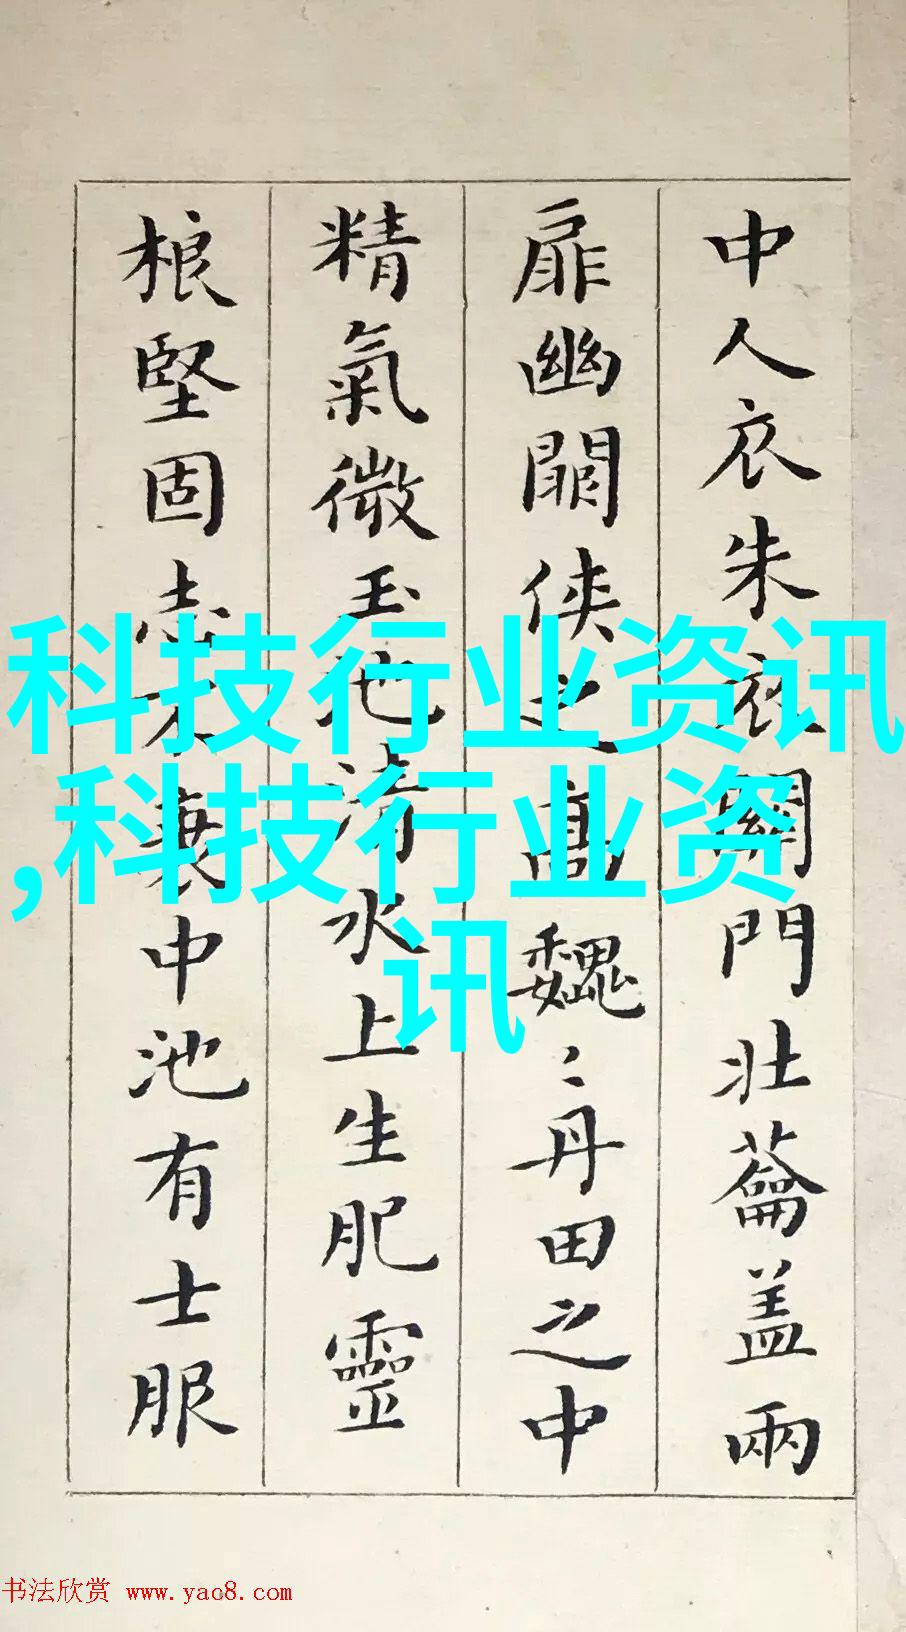 科技行业资讯
,科技行业资
讯
中人衣朱衣關門壯蘥盖兩
扉幽俠之髙巍〻丹田之中
精氣微玉池清水上生肥靈
根堅固志不衰中池有士服
书法欣赏 www.yac8.com